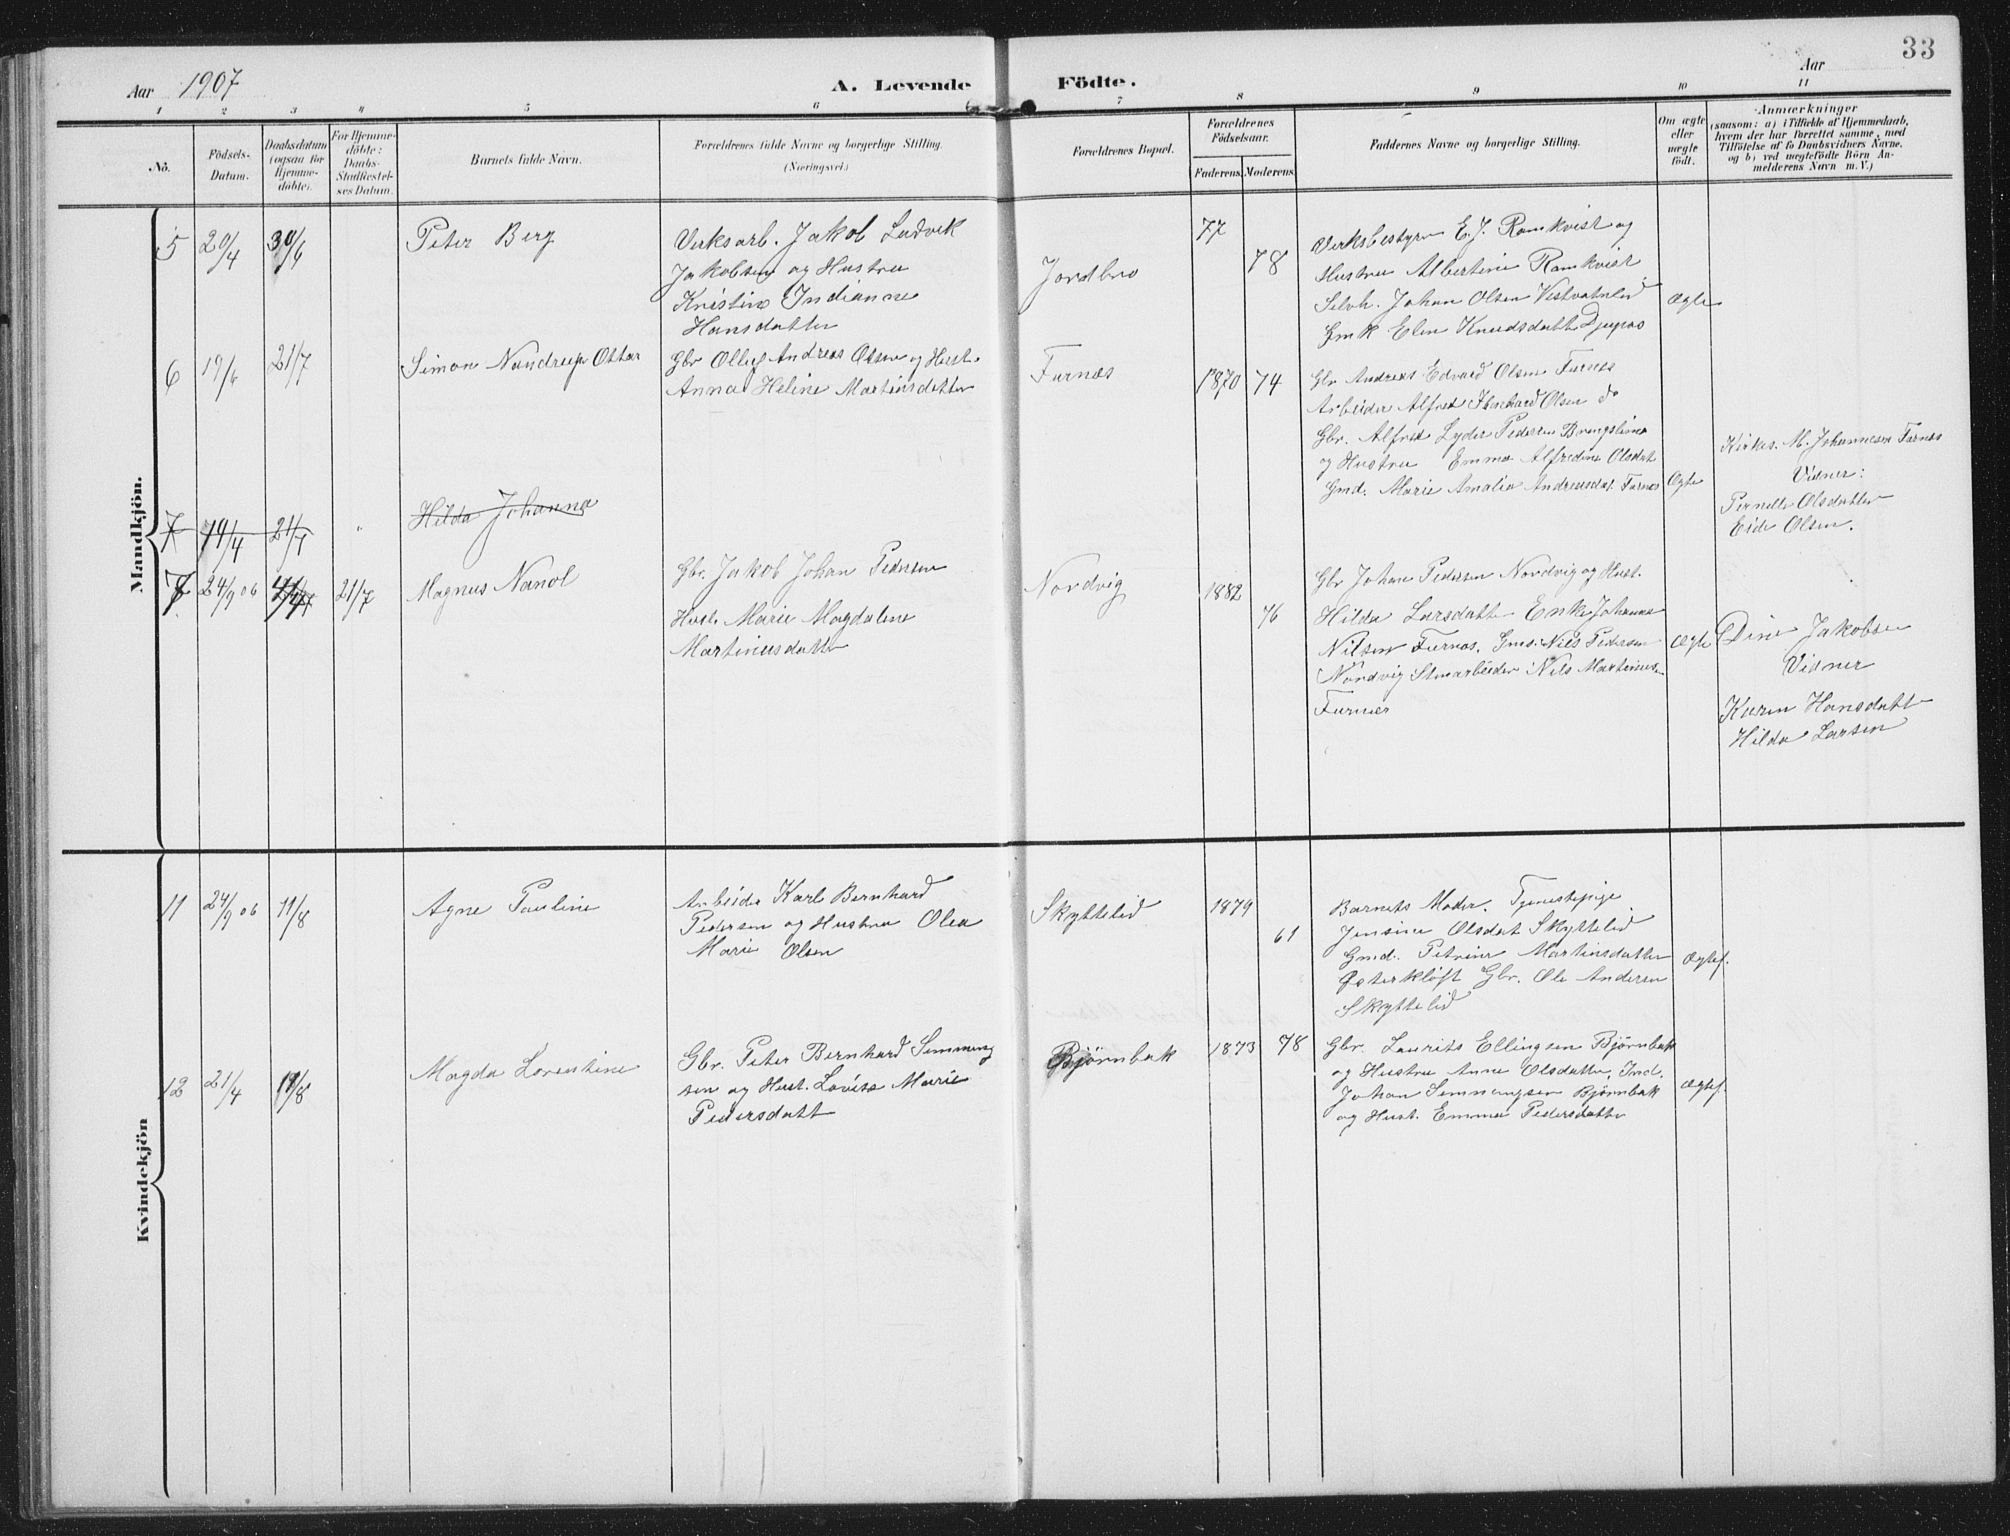 33
Aar 1907
A. Levende Födte.
Aar
1 2 3 4 5 6 7 8 9 10 11
No.
Födsels-
Datum.
Daabsdatum
(ogsaa for
Hjemme-
döbte).
For Hjemme-
döbte:
Daabs-
Stadfæstel-
ses Datum.
Barnets fulde Navn.
Forældrenes fulde Navne og borgerlige Stilling.
(Næringsvei.)
Forældrenes Bopæl.
Forældrenes
Födselsaar.
Faderens. Moderens.
Faddernes Navne og borgerlige Stilling.
Om ægte
eller
uægte
födt.
Anmærkninger
(saasom: a) i Tilfælde af Hjemmedaab,
hvem der har forrettet samme, med
Tilföielse af to Daabsvidners Navne,
og b) ved uægtefödte Börn An-
melderens Navn m. V.)
Mandkjön.
5 20/4 30/6 Peter Berg
Verksarb. Jakob Ludvik
Jakobsen og Hustru
Kristine Indianne
Hansdatter
Jordbro
77
78
Verksbestyrer E. J. Ramkvist og
Hustru Albertine Ramkvist
Selvh. Johan Olsen Vestvatnlid
Gmk Elen Knudsdatt Djupos
Ægte
6 19/6 21/7 Simon Nandrup Ottar
Gbr Olluf Andreas Olsen og Hust.
Anna Heline Martinsdatter
Furnæs
1870 74
Gbr Andreas Edvard Olsen Furnes
Arbeider Alfred Ibenhard Olsen do
Gbr. Alfred Lyder Pedersen Brungslien
og Hustru Emma Alfredine Olsdat
Gmd. Marie Amalia Andreasdat. Furnes
Ægte
Kirkes. M. Johannesen Furnes
Vidner:
Pernelle Olsdatter
Eide Olsen.
7 19/4 21/7 " Hilda Johanna
7 24/9 06 21/7 Magnus Nanol
Gbr. Jakob Johan Pedersen
Hust. Marie Magdalene
Martinusdatter
Nordvig
1882
76
Gbr Johan Pedersen Nordvig og Hust.
Hilda Larsdatter Enke Johanna
Nilsen Furnes, Gmd. Nils Pedersen
Nordvig Stenarbeider Nils Martinus.
Furnes
Ægte
Dine Jakobsen
Vidner
Karen Hansdatt
Hilda Larsen
Kvindekjön
11 24/9 06 11/8 Agne Pauline
Arbeider Karl Bernhard
Pedersen og Hustru Olea
Marie Olsen
Skyttelid
1879
61
Barnets Moder. Tjenestepige
Jensine Olsdat Skyttelid
Gmd. Petrine Martinsdatter
Østerkløft Gbr. Ole Andersen
Skyttelid
Ægtef.
12 21/4 11/8 Magda Lorentine
Gbr. Peter Bernhard Semming
sen og Hust. Lovise Marie
Pedersdatt
Bjørnbak
1873 78
Gbr. Laurits Ellingsen Bjørnbak
og Hustru Anne Olsdatter, Ind.
Johan Semmingsen Bjørnbak
og Hust. Emma Pedersdatter
Ægtef.